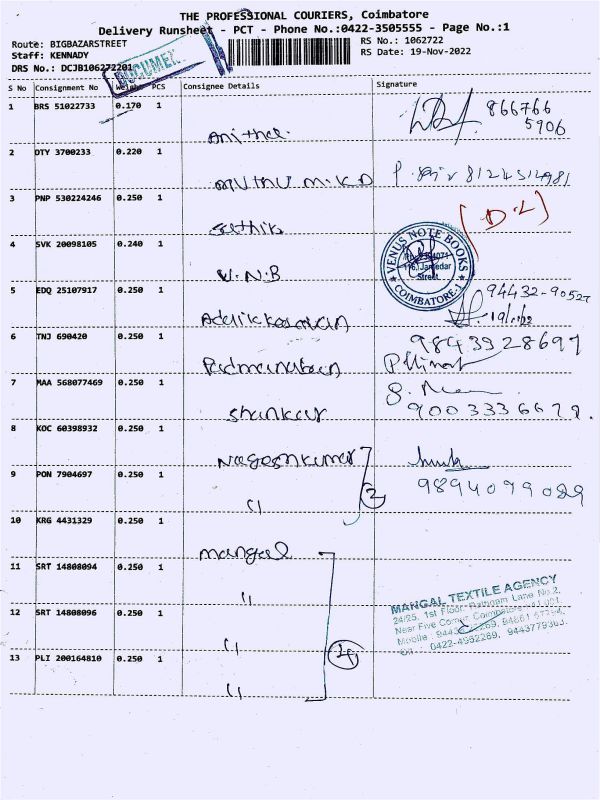 THE PROFESSIONAL COURIERS, Coimbatore
Delivery Runsheet - PCT - Phone No.:0422-3505555 - Page No.:1
Route: BIGBAZARSTREET
RS No.: 1062722
Staff: KENNADY
RS Date: 19-Nov-2022
DRS No.: DCJB106272201
DOCUMEN
S No Consignment No Weight PCS Consignee Details Signature
1 BRS 51022733 0.170 1 Anithee 866766
5906
2 DTY 3700233 0.220 1 muthu M.K.D 8124514981
3 PNP 530224246 0.250 1 Sathis (D.L)
4 SVK 20098105 0.240 1 V.N.B
VENUS NOTE BOOKS
116, Jamedar
Street
COIMBATORE-1
5 EDQ 25107917 0.250 1 94432-90527
6 TNJ 690420 0.250 1 Padmanaban 9843328697
7 MAA 568077469 0.250 1 Shankar 9003336679.
8 KOC 60398932 0.250 1 Nageshkumar
9 PON 7904697 0.250 1 " 2 9894079089
10 KRG 4431329 0.250 1 mangal
11 SRT 14808094 0.250 1 "
MANGAL TEXTILE AGENCY
24/25, 1st Floor, Rathnam Lane No.2,
Near Five Corner, Coimbatore
12 SRT 14808096 0.250 1 " 4
Mobile
0422-4952269, 9443779363.
13 PLI 200164810 0.250 1 "